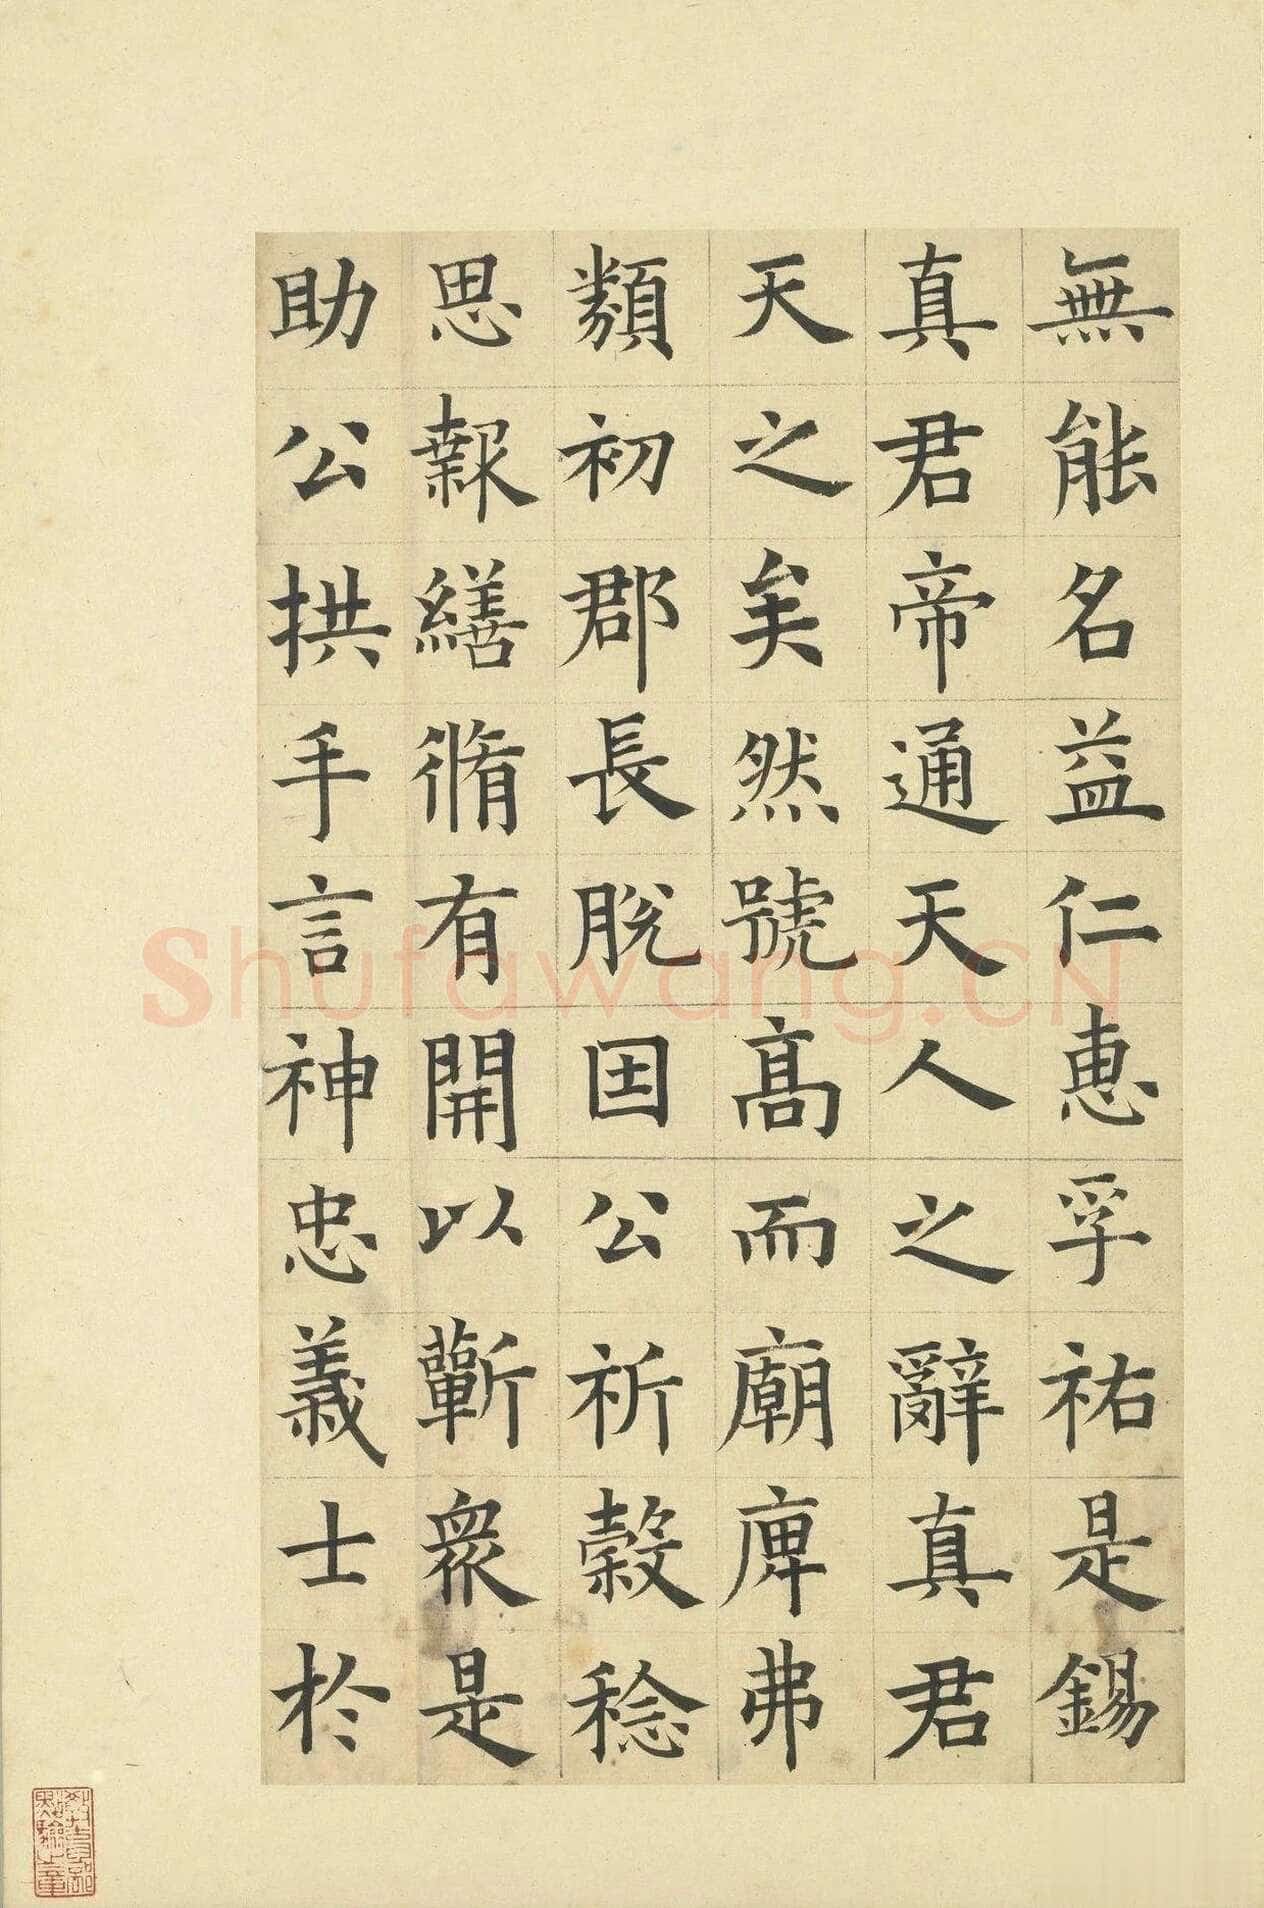 無能名益仁惠孚祐是錫
真君帝通天人之辭真君
天之矣然號高而廟庳弗
類初郡長脫因公祈穀稔
思報繕脩有開以蘄眾是
助公拱手言神忠義士於
Shufawang.CN